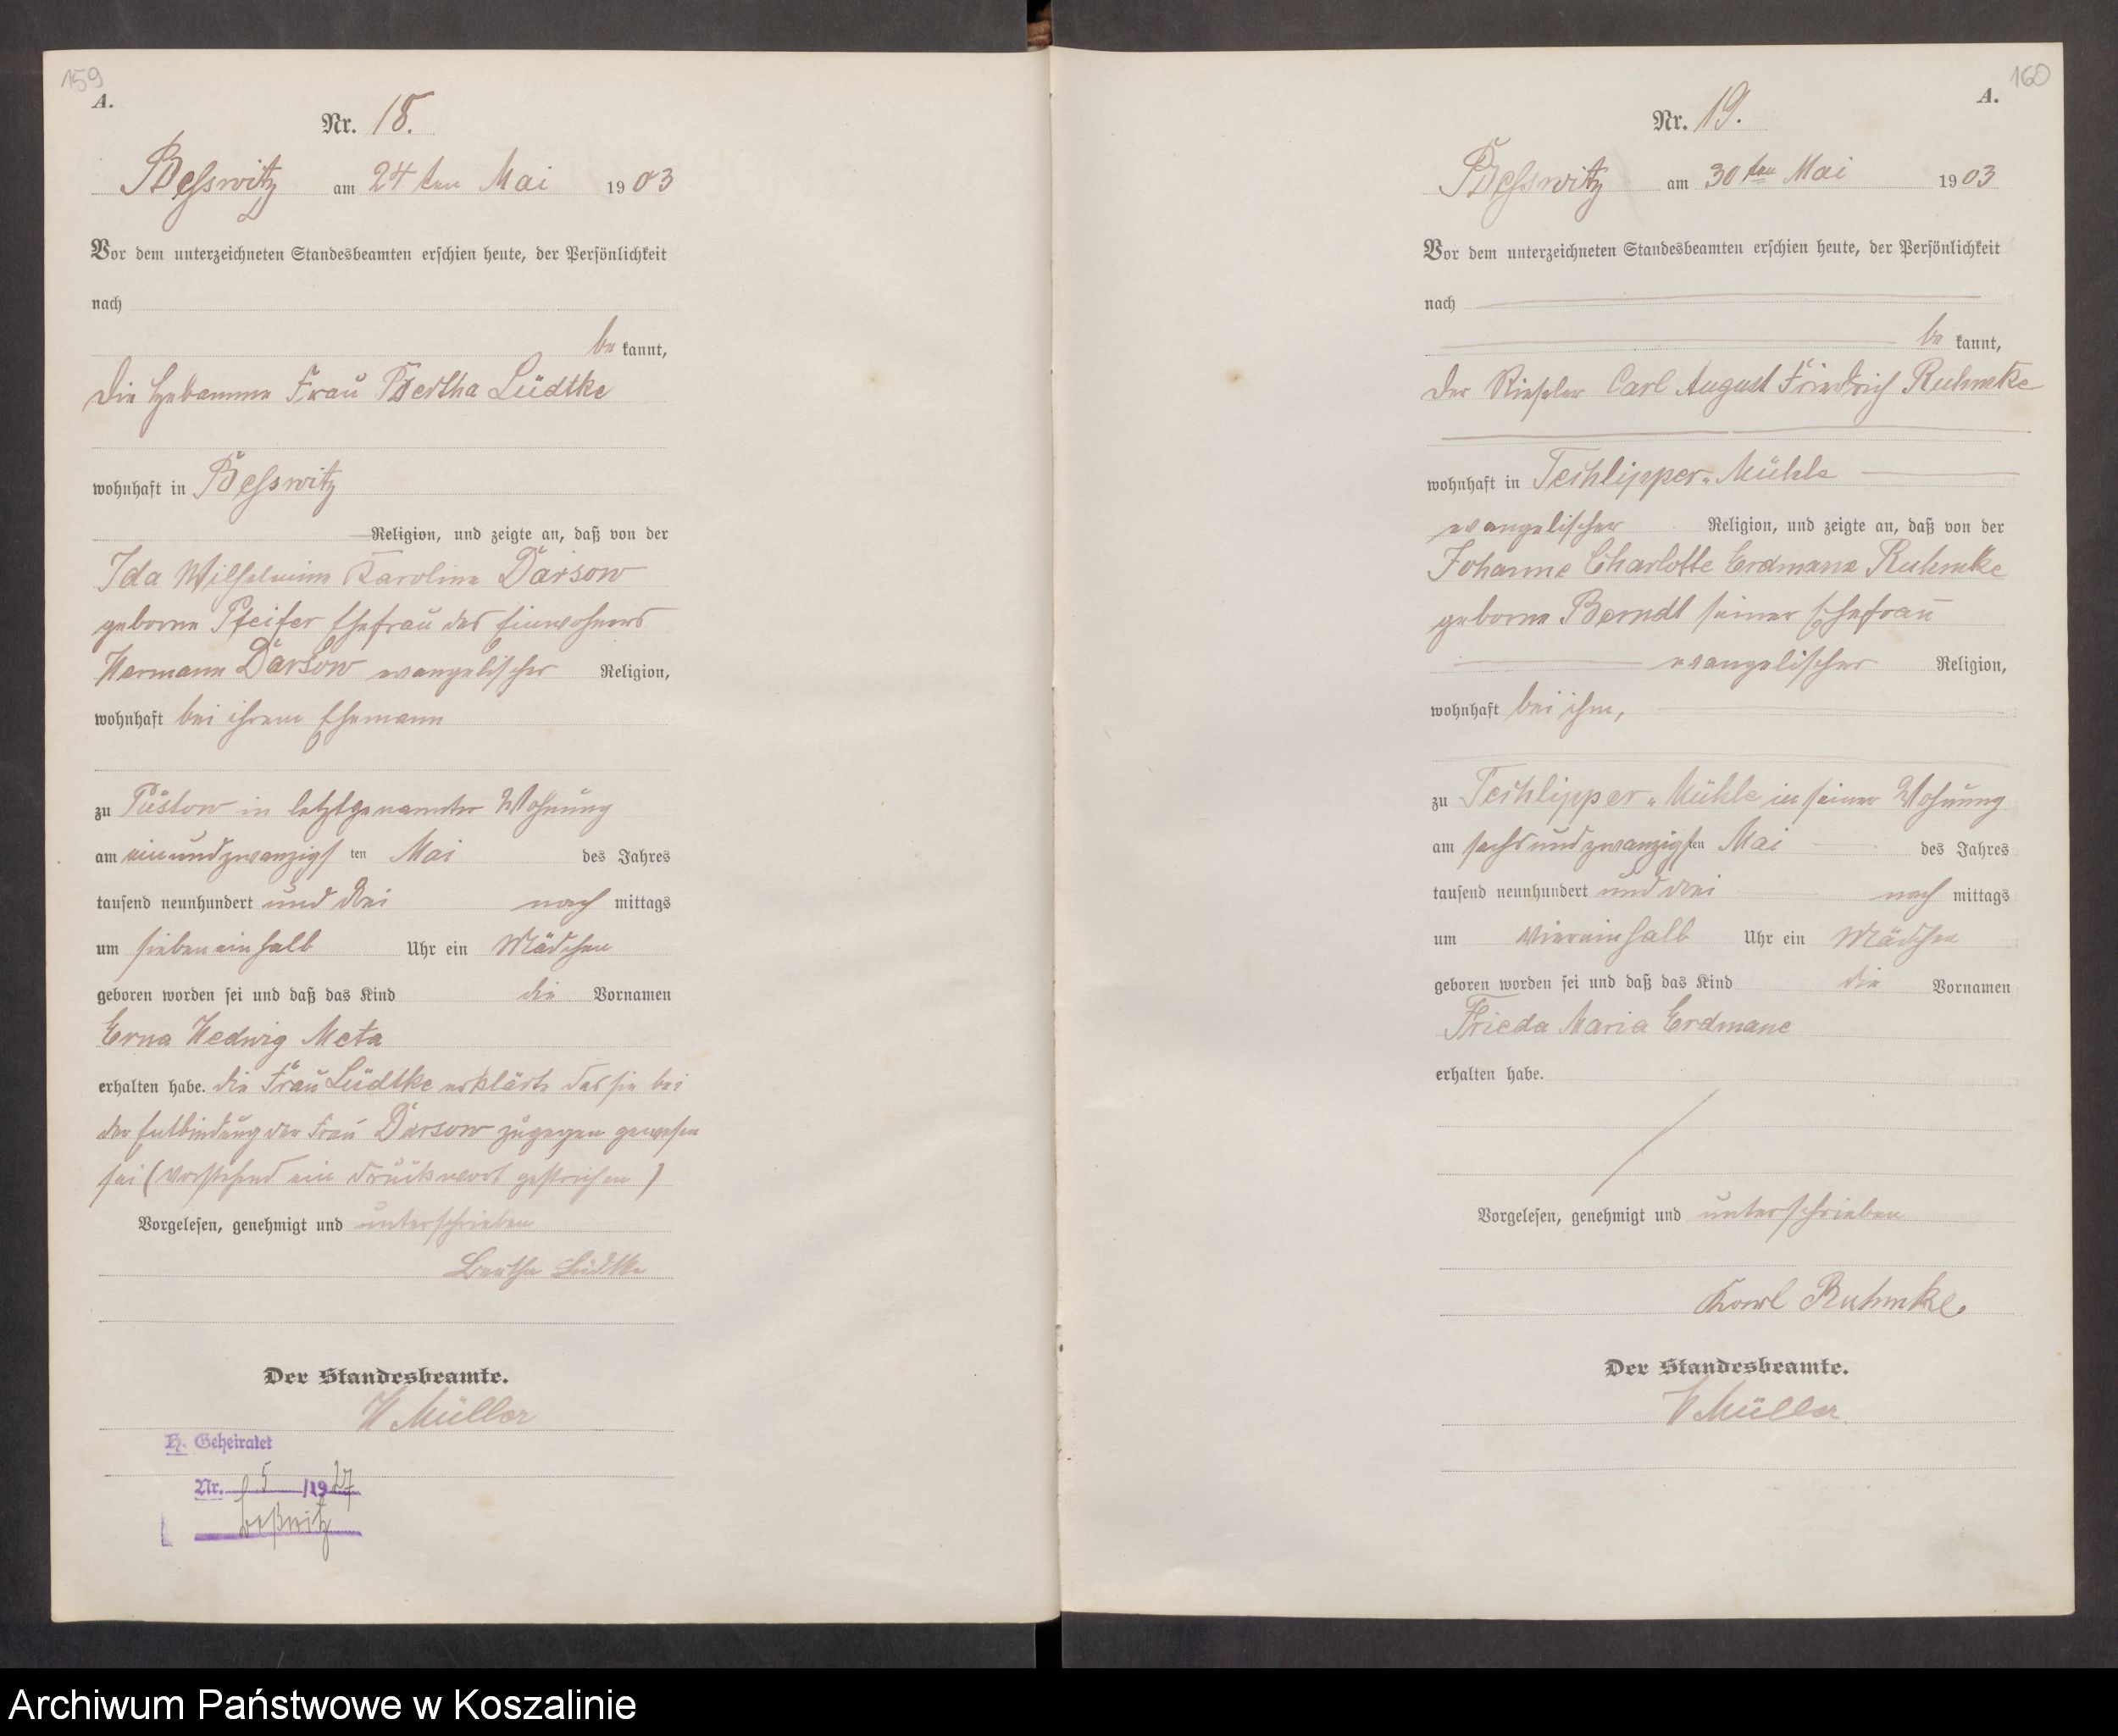 159
A.
Nr. 18.
Besswitz am 24 ten Mai 1903
Vor dem unterzeichneten Standesbeamten erschien heute, der Persönlichkeit
nach
be kannt,
die Hebamme Frau Bertha Lüdtke
wohnhaft in Besswitz
Religion, und zeigte an, daß von der
Ida Wilhelmine Karoline Darsow
geborne Pfeifer Ehefrau des Einwohners
Hermann Darsow evangelischer Religion,
wohnhaft bei ihrem Ehemann
zu Püstow in letztgenannter Wohnung
am einundzwanzigs ten Mai des Jahres
tausend neunhundert und drei nach mittags
um siebeneinhalb Uhr ein Mädchen
geboren worden sei und daß das Kind die Vornamen
Erna Hedwig Meta
erhalten habe. die Frau Lüdtke erklärte das sie bei
der Entbindung der Frau Darsow zugegen gewesen
sei (vorstehend ein Druckwort gestrichen)
Vorgelesen, genehmigt und unterschrieben
Bertha Lüdtke
Der Standesbeamte.
H Müller
H. Geheiratet
Nr. 5 /1927
Beßwitz
160
A.
Nr. 19.
Besswitz am 30 ten Mai 1903
Vor dem unterzeichneten Standesbeamten erschien heute, der Persönlichkeit
nach
be kannt,
der Rieseler Carl August Friedrich Ruhmke
wohnhaft in Techlipper-Mühle
evangelischer Religion, und zeigte an, daß von der
Johanne Charlotte Erdmane Ruhmke
geborne Berndt seiner Ehefrau
evangelischer Religion,
wohnhaft bei ihm,
zu Techlipper-Mühle in seiner Wohnung
am sechsundzwanzigsten Mai des Jahres
tausend neunhundert und drei nach mittags
um viereinhalb Uhr ein Mädchen
geboren worden sei und daß das Kind die Vornamen
Frieda Maria Erdmane
erhalten habe.
Vorgelesen, genehmigt und unterschrieben
Karl Ruhmke.
Der Standesbeamte.
H Müller.
Archiwum Państwowe w Koszalinie